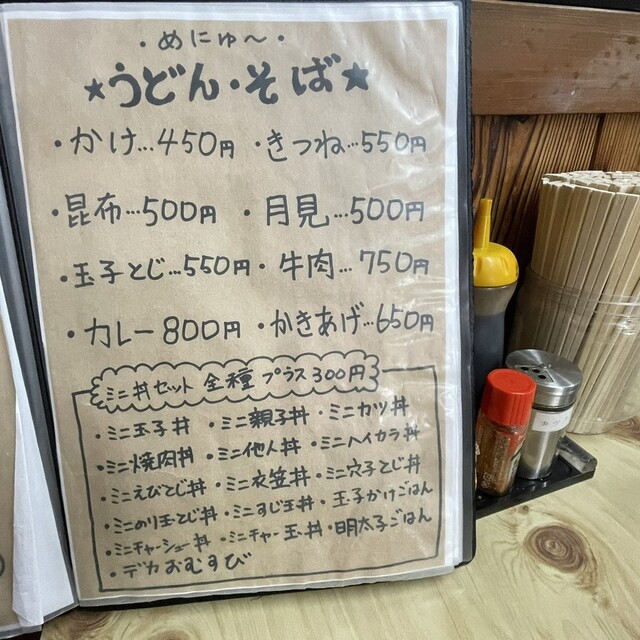 ・めにゅ〜・
★うどん・そば★
・かけ…450円 ・きつね…550円
・昆布…500円 ・月見…500円
・玉子とじ…550円 ・牛肉…750円
・カレー800円 ・かきあげ…650円
ミニ丼セット 全種 プラス300円
・ミニ玉子丼 ・ミニ親子丼 ・ミニカツ丼
・ミニ焼肉丼 ・ミニ他人丼 ・ミニハイカラ丼
・ミニえびとじ丼 ・ミニ衣笠丼 ・ミニ穴子とじ丼
・ミニのり玉とじ丼 ・ミニすじ玉丼 ・玉子かけごはん
・ミニチャーシュー丼 ・ミニチャー玉丼 ・明太子ごはん
・デカおむすび